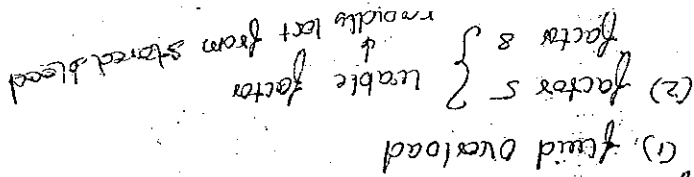 (1). fluid overload
(2) factor 5 } leable factor
factor 8 ↓ rapidly lost from stored blood